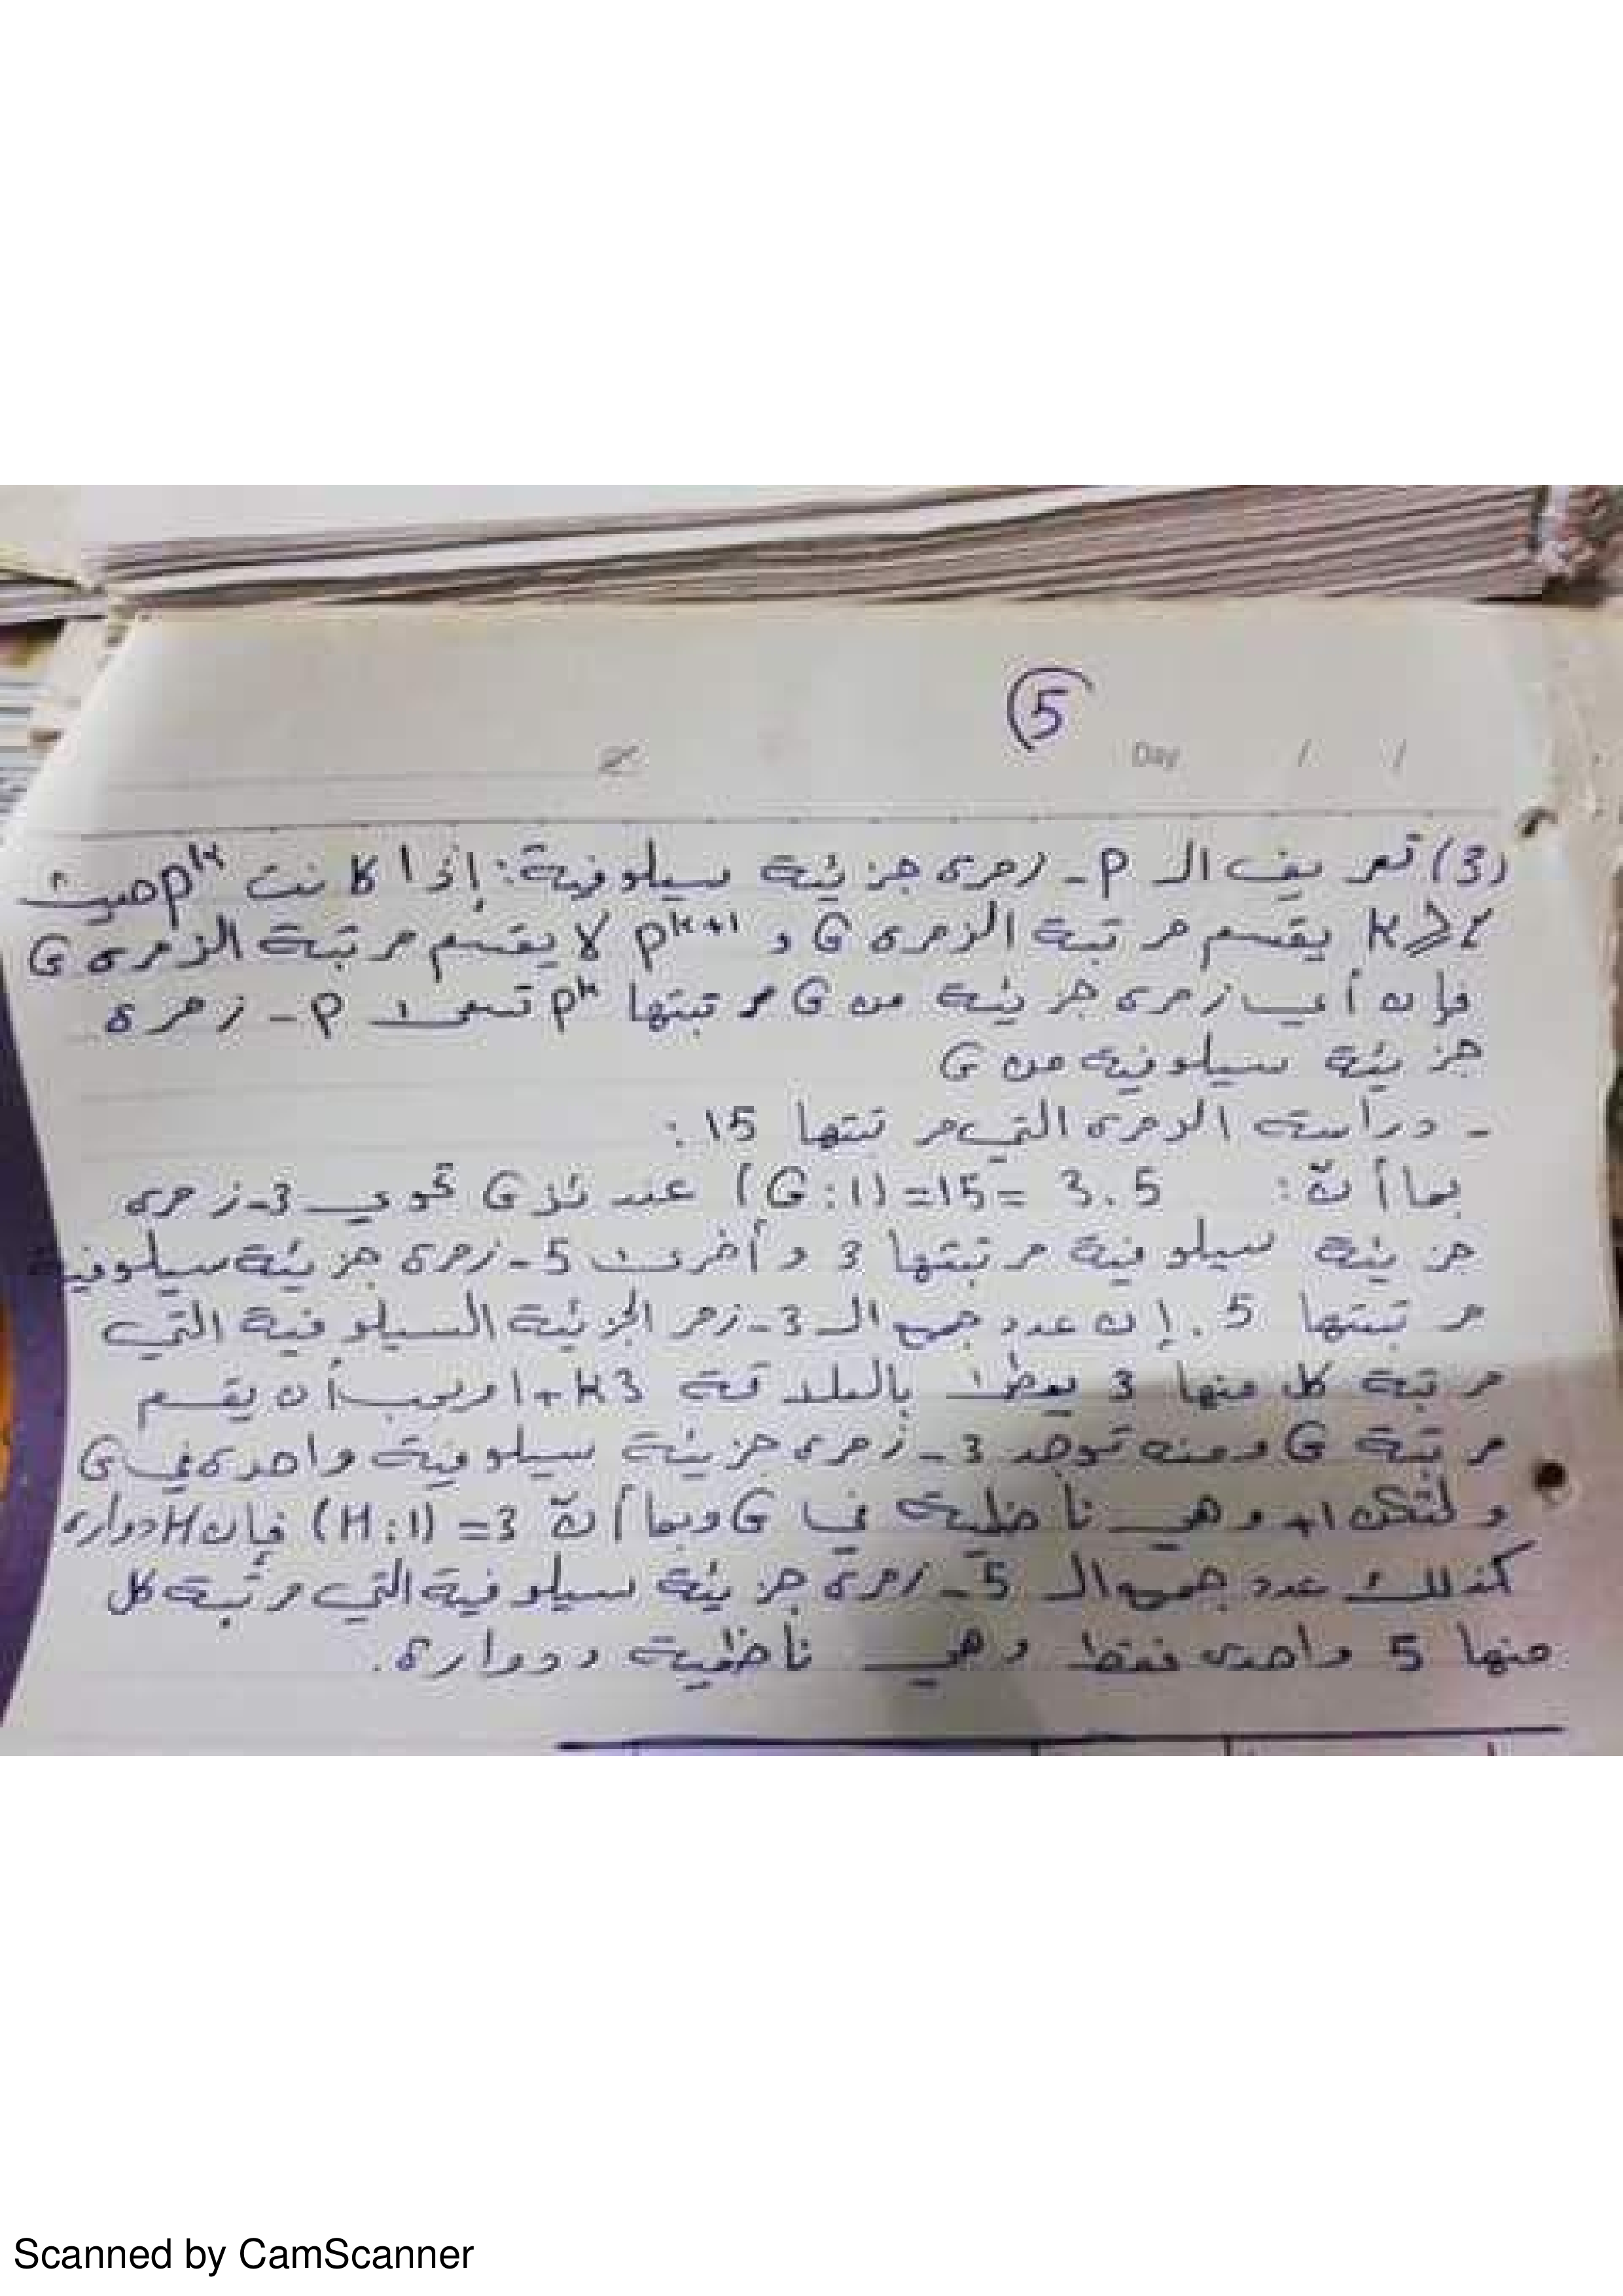 5
Day / /
(3) تعريف الـ P- زمرة جزئية سيلوفية: إذا كانت pᵏ حيث
K⩾ يقسم مرتبة الزمرة G و pᵏ⁺¹ لا يقسم مرتبة الزمرة G
فإن أي زمرة جزئية من G مرتبتها pᵏ تسمى P - زمرة
جزئية سيلوفية من G
- دراسة الزمرة التي مرتبتها 15 :
بما أنّ : (G:1)=15= 3.5 عندئذ G تحوي 3- زمرة
جزئية سيلوفية مرتبتها 3 وأخرى 5- زمرة جزئية سيلوفية
مرتبتها 5 . إن عدد جميع الـ 3- زمر الجزئية السيلوفية التي
مرتبة كل منها 3 يعطى بالعلاقة 1+K3 ويجب أن يقسم
مرتبة G ومنه توجد 3- زمرة جزئية سيلوفية واحدة في G
ولتكن H وهي ناظمية في G وبما أنّ (H:1) =3 فإن H دوارة
كذلك عدد جميع الـ 5- زمرة جزئية سيلوفية التي مرتبة كل
منها 5 واحدة فقط وهي ناظمية ودوارة .
Scanned by CamScanner